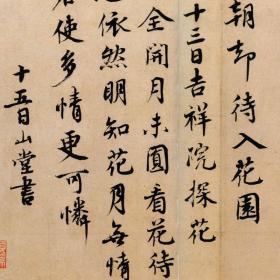 朝却待入花園
十三日吉祥院探花
全開月未圓看花待
依然明知花月無情
若使多情更可憐
十五日山堂書